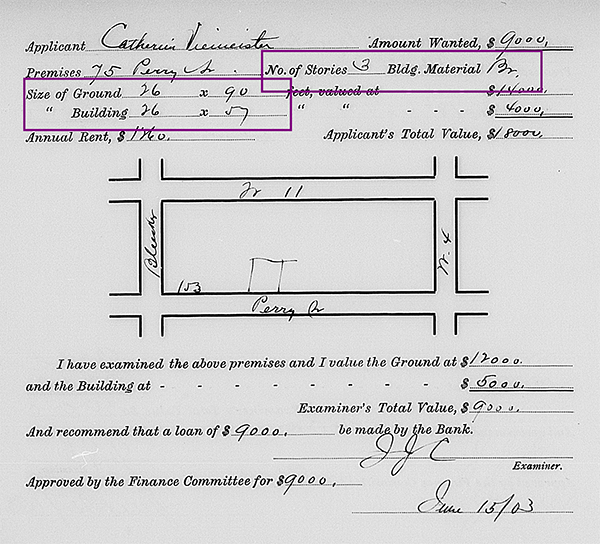 Applicant Catherin Viemeister Amount Wanted, $ 9000.
Premises 75 Perry St. No. of Stories 3 Bldg. Material Br.
Size of Ground 26 x 90 feet, valued at $ 14000.
" Building 26 x 57 " " - - - $ 4000.
Annual Rent, $ 1260. Applicant's Total Value, $ 18000.
W 11
Bleecker
W. 4
153
Perry St
I have examined the above premises and I value the Ground at $ 12000.
and the Building at - - - - - - - - $ 5000.
Examiner's Total Value, $ 9000.
And recommend that a loan of $ 9000. be made by the Bank.
J J C
Examiner.
Approved by the Finance Committee for $9000.
June 15/03